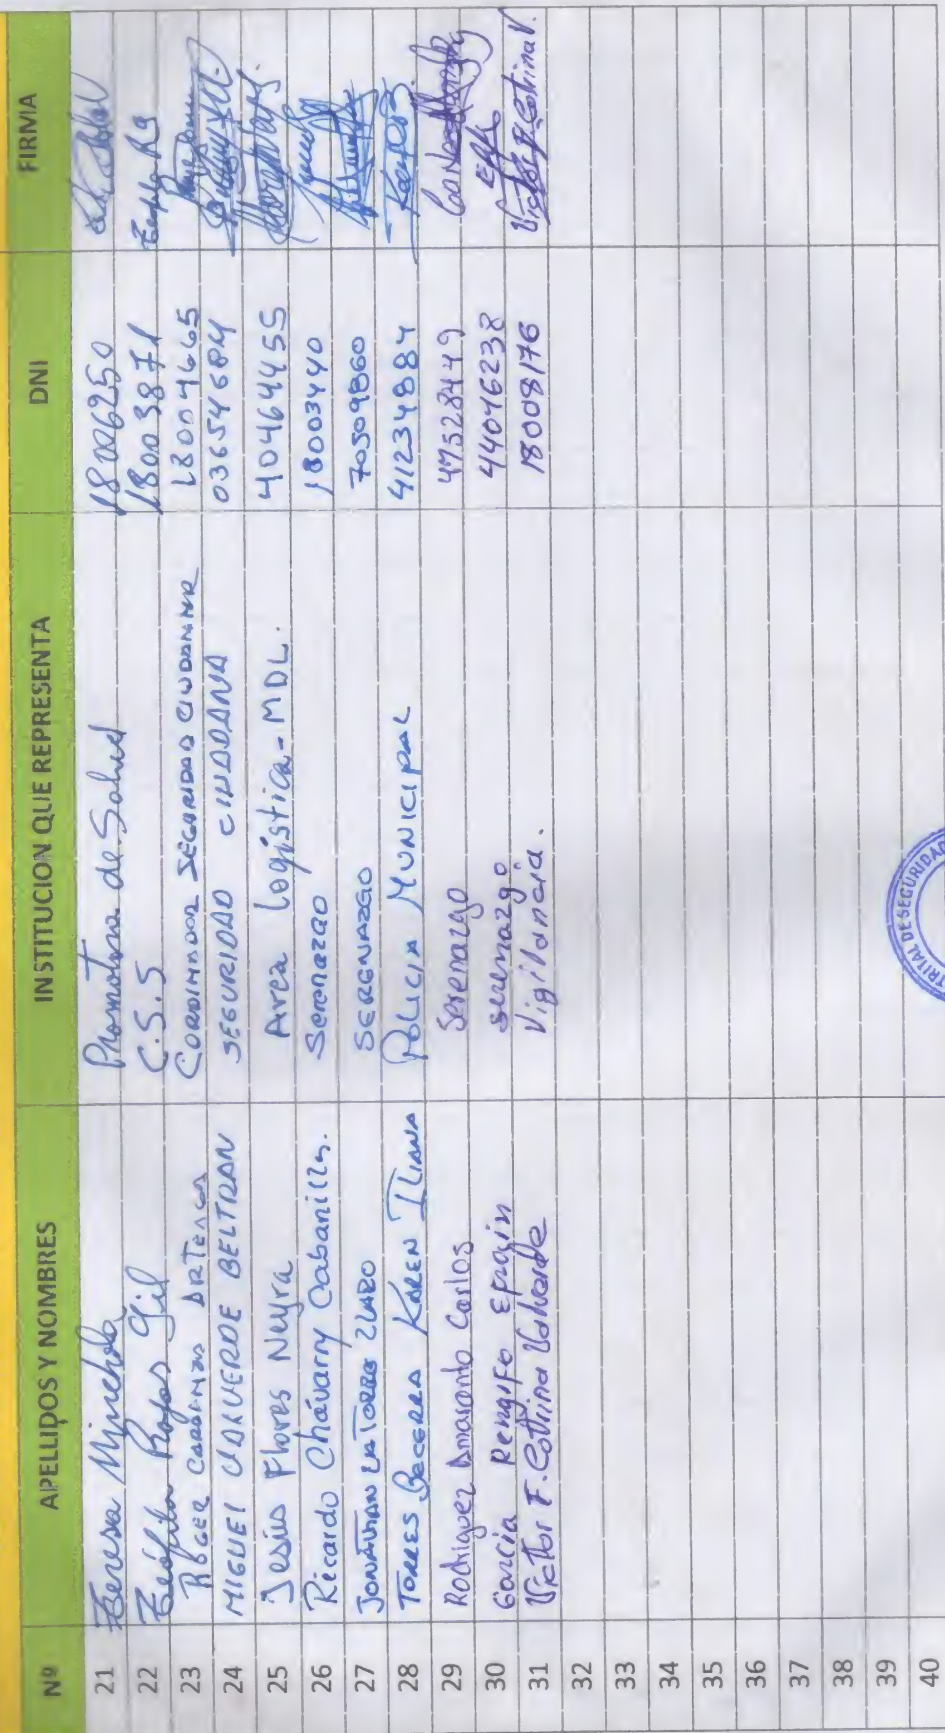 Nº APELLIDOS Y NOMBRES INSTITUCION QUE REPRESENTA DNI FIRMA
21 Teresa Mincholo Promotora de Salud 18006250
22 Teófila Rojas Gil C.S.S 18003871
23 ROGER CARDENAS ARTEAGA CORDINADOR SEGURIDAD CIUDADANA 18004665
24 MIGUEL VALVERDE BELTRAN SEGURIDAD CIUDADANA 03654684
25 Jesús Flores Neyra Area Logística - MDL. 40464455
26 Ricardo Chávarry Cabanillas. Serenazgo 18003440
27 JONATHAN LA TORRE SERENAZGO 70509860
28 TORRES BECERRA KAREN ILIANA POLICIA MUNICIPAL 41234884
29 Rodriguez Amaranto Carlos Serenazgo 47528449
30 Garcia Rengifo Efrain serenazgo 44046238
31 Victor F. Cotrina Valverde Vigilancia. 18008176 Victor F. Cotrina V.
32
33
34
35
36
37
38
39
40
DE SEGURIDAD